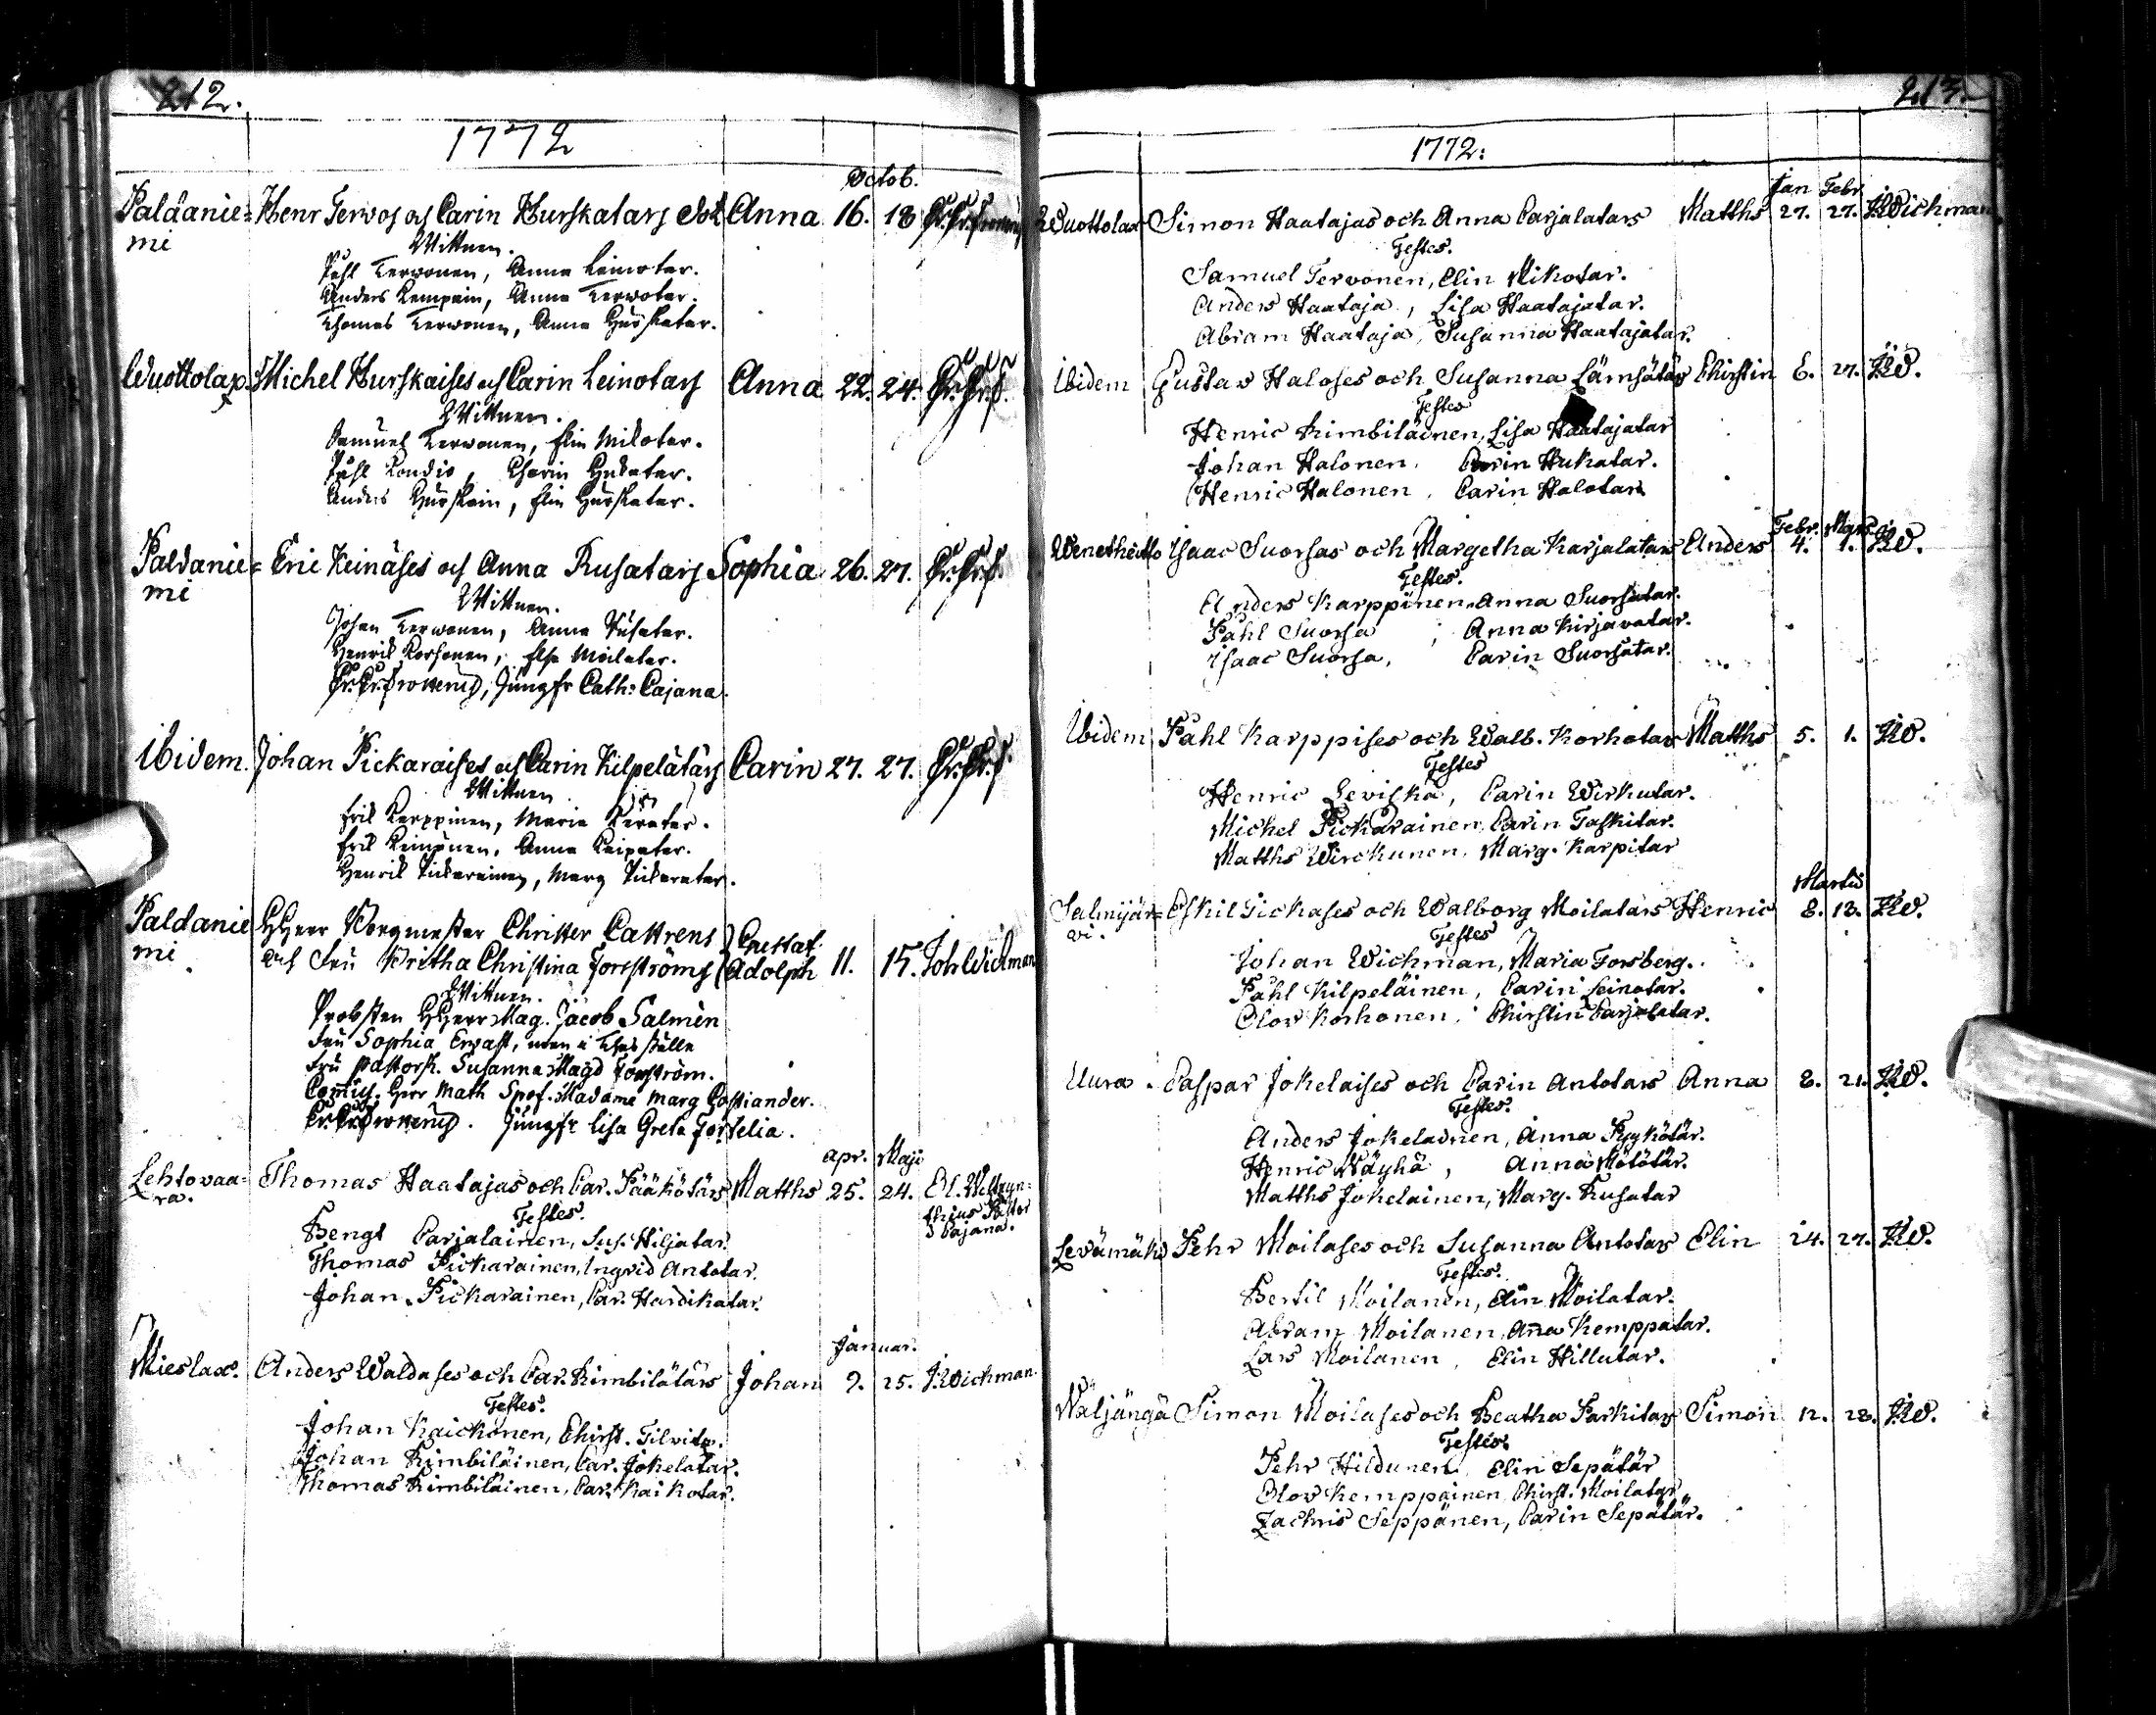 212.
1772
Octob.
Paldanie= Henr Tervos och Carin Hurskatars dot Anna 16. 18
mi
Wittnen.
Påhl Terwonen, Anna Leinotar.
Anders Kempain, Anna Terwotar.
Thomas Terwonen, Anna Hurskatar.
Wuottolax Michel Hurskaises och Carin Leinotars Anna 22. 24.
Wittnen.
Samuel Terwonen, Elin Mikotar.
Påhl Kondio, Charin Hukatar.
Anders Hurskain, Elin Hurskatar.
Paldanie= Eric Keinäses och Anna Rusatars Sophia 26. 27.
mi
Wittnen.
Johan Terwonen, Anna Rusatar.
Henrik Korhonen, Elsa Moilatar.
Jungfr Cath: Cajana.
Ibidem. Johan Pickaraises och Carin Kilpelätärs Carin 27. 27.
Wittnen
Erik Karppinen, Maria
Erik Keinänen, Anna
Henrik Pickarainen, Marg Pickaratar.
Paldanie HHerr Bergmester Christer Castrens Gustaf
mi och Fru Britha Christina Forströms Adolph 11. 15. Joh Wichman
Wittnen.
Probsten HHerr Mag. Jacob Salmén
Fru Sophia Ervast, men i Thes ställe
Fru Pastorsk. Susanna Magd Forström.
Commiss. Herr Math Spof. Madame Marg
Jungfr Lisa Greta Forselia.
Apr. Maji
Lehtovaa= Thomas Haatajas och Car. Pääkötärs Matths 25. 24. El.
ra.
Testes.
Bengt Carjalainen, Sus. Hiljatar.
Thomas Pickarainen, Ingrid Antotar.
Johan Pickarainen, Car. Hardikatar.
Januar.
Mieslax. Anders Waldases och Car. Kimbilätärs Johan 9. 25. J. Wichman.
Testes.
Johan Kaickonen, Chirst. Tilvitar.
Johan Kimbiläinen, Car. Jokelatar.
Thomas Kimbiläinen, Car. Kaikotar.
213.
1772:
Jan Febr
Wuottolax Simon Haatajas och Anna Carjalatars Matths 27. 27. JWichman
Testes.
Samuel Tervonen, Elin Mikotar.
Anders Haataja, Lisa Haatajatar.
Abram Haataja, Susanna Haatajatar.
Ibidem Gustav Haloses och Susanna Lämsätärs Chirstin 6. 27. JW.
Testes
Henric Kimbiläinen, Lisa Haatajatar
Johan Halonen, Carin Hukatar.
Henric Halonen, Carin Halotar.
Febr. Mars.
Wenetheitto Isaac Suorsas och Margetha Karjalatars Anders 4. 1. JW.
Testes.
Anders Karppinen, Anna Suorsatar.
Påhl Suorsa, Anna Kirjavatar.
Isaac Suorsa, Carin Suorsatar.
Ibidem Påhl Karppises och Walb. Korhotars Matths 5. 1. JW.
Testes
Henric Leviska, Carin Wirkutar.
Michel Pickarainen, Carin Taskitar.
Matths Wirckunen, Marg. Karpitar
Martii
Salmijär= Eskil Pickases och Walborg Moilatars Henric 8. 13. JW.
vi.
Testes
Johan Wichman, Maria Forsberg.
Påhl Kilpeläinen, Carin Leinotar.
Olov Korhonen, Chirstin Carjalatar.
Uura. Caspar Jokelaises och Carin Antotars Anna 8. 21. JW.
Testes.
Anders Jokelainen, Anna Pyykötär.
Henric Väyhä, Anna Mötötär.
Matths Jokelainen, Marg. Rusatar
Levämäki Pehr Moilases och Susanna Antotars Elin 24. 27. JW.
Testes.
Bertil Moilanen, Elin Moilatar.
Abram Moilanen, Anna Kemppatar.
Lars Moilanen, Elin Hillutar.
Waljängä Simon Moilases och Beatha Parkitars Simon 12. 28. JW.
Testes.
Pehr Hildunen, Elin Sepätär
Olov Kemppainen, Chirst. Moilatar
Zachris Seppänen, Carin Sepätär.